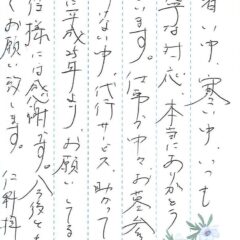 暑い中、寒い中、いつも
寧な対応、本当にありがとう
います。仕事が中々お墓参
らない中、代行サービス、助かって
に平成25年より、お願いしてる
位様には感謝です。今後とも
くお願い致します。